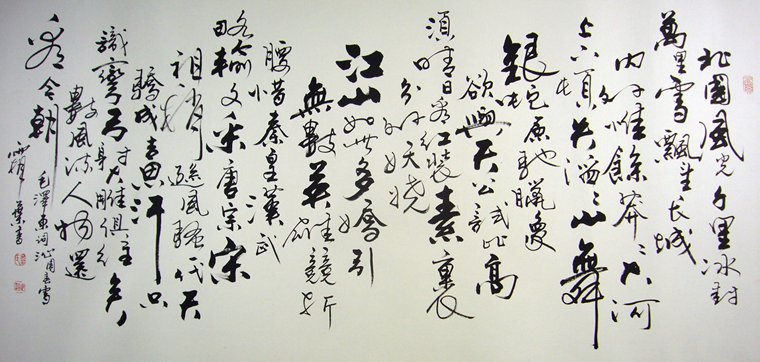 北國風光千里冰封
萬里雪飄望长城
内外惟餘莽〻大河
上下頓失滔〻山舞
銀蛇原馳臘象
欲與天公試比高
須晴日看红装素裹
分外妖嬈
江山如此多嬌引
無數英雄競折
腰惜秦皇漢武
略輸文采唐宗宋
祖稍遜風騷一代天
驕成吉思汗只
識彎弓射大雕俱往矣
數風流人物還
看今朝
毛澤東詞沁園春雪